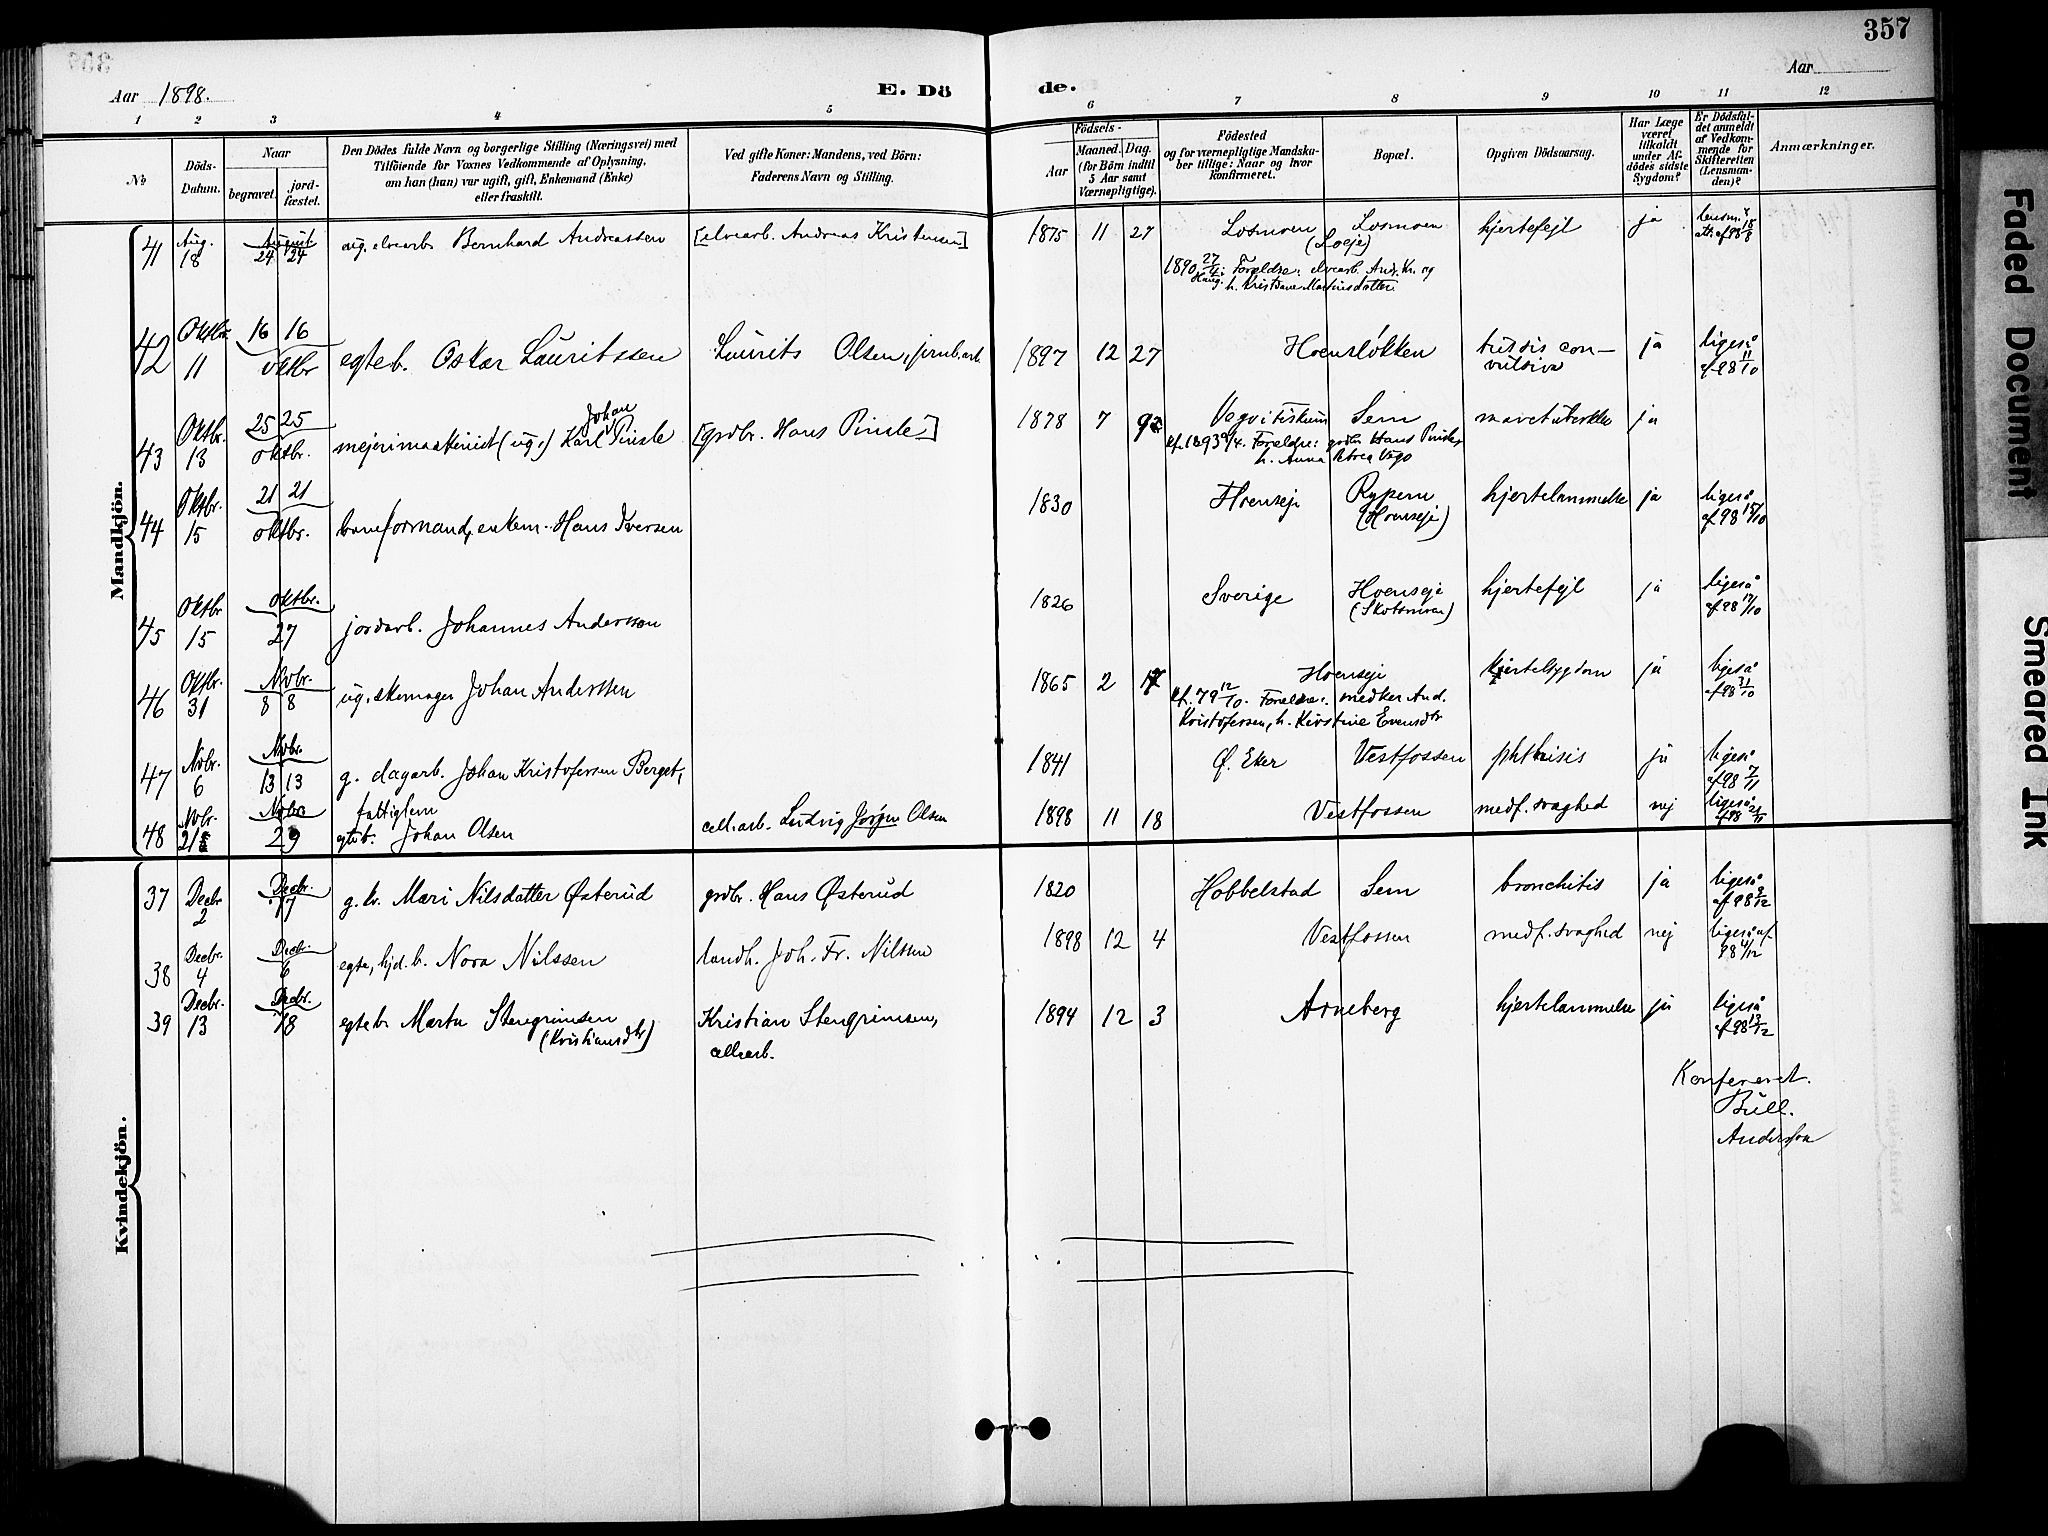 357
Aar 1898.
E. Dö de.
Aar
1 2 3 4 5 6 7 8 9 10 11 12
No
Döds-Datum.
Naar
begravet.
jord-fæstet.
Den Dödes fulde Navn og borgerlige Stilling (Næringsvei) med
Tilföiende for Voxnes Vedkommende af Oplysning,
om han (hun) var ugift, gift, Enkemand (Enke)
eller fraskilt.
Ved gifte Koner: Mandens, ved Börn:
Faderens Navn og Stilling.
Födsels-
Aar
Maaned. Dag.
(for Börn indtil
5 Aar samt
Værnepligtige).
Födested
og for værnepligtige Mandska-
ber tillige: Naar og hvor
konfirmeret.
Bopæl.
Opgiven Dödsaarsag.
Har Læge
været
tilkaldt
under Af-
dödes sidste
Sygdom?
Er Dödsfal-
det anmeldt
af Vedkom-
mende for
Skifteretten
(Lensman-
den)?
Anmærkninger.
Mandkjön.
41 Aug. 18 August 24 24 ug. elvearb. Bernhard Andreassen [elvearb. Andreas Kristensen] 1875 11 27 Losmoen Losmoen hjertefejl ja lensm.s att. af 98 18/8
(Loeje)
1890 27/4. Forældre: elvearb. And. Kr. og
Haug. h. Kristiane Martinsdatter.
42 Oktbr. 11 16 16 oktbr egteb. Oskar Lauritssen Laurits Olsen, jernb.arb 1897 12 27 Hoensløkken tussis con-
vulsiva ja ligeså af 98 11/10
43 Oktbr. 13 25 25 oktbr. mejerimaskinist (ug.) Karl Johan Pinsle [grdbr. Hans Pinsle] 1878 7 Sem ja
h. Anna Petrea
44 Oktbr. 15 21 21 oktbr. baneformand, enkem. Hans Iversen 1830 Hoenseje Rypern (Hoenseje) hjertelammelse ja ligeså af 98 15/10
45 Oktbr 15 oktbr. 27 jordarb. Johannes Anderssen 1826 Sverige Hoenseje (Skotsmoen) hjertefejl ja ligeså af 98 17/10
46 Oktbr. 31 Novbr. 8 8 ug. skomager Johan Anderssen 1865 2 17 Hoenseje hjertesygdom ja ligeså af 98 31/10
kf. 79 12/10. Forældre: And.
Kristofersen, h. Kirstine Evensdtr
47 Novbr. 6 Novbr. 13 13 g. dagarb. Johan Kristofersen Berget, 1841 Ø. Eker Vestfossen phthisis ja ligeså af 98 7/11
fattiglem
48 Novbr. 21 Novbr. 29 egteb. Johan Olsen cell.arb. Ludvig Jørgen Olsen 1898 11 18 Vestfossen medf. svaghed nej ligeså af 98 21/11
Kvindekjön.
37 Decbr 2 Decbr. 17 g. k. Mari Nilsdatter Østerud grdbr. Hans Østerud 1820 Hobbelstad Sem bronchitis ja ligeså af 98 9/12
38 Decbr. 4 Decbr. 6 egte, hjd. b. Nora Nilssen landh. Joh. Fr. Nilssen 1898 12 4 Vestfossen medf. svaghed nej ligeså af 98 4/12
39 Decbr. 13 Decbr. 18 egteb Marta Stengrimsen Kristian Stengrimsen, 1894 12 3 Arneberg hjertelammelse ja ligeså af 98 13/12
(Kristiansdtr) cell.arb.
Konfereret.
Bull.
Anderssen
Faded Document
Smeared Ink